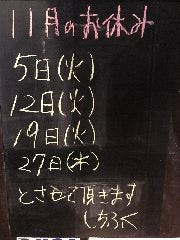 11月のお休み
5日(火)
12日(火)
19日(火)
27日(木)
とさせて頂きます
しちふく